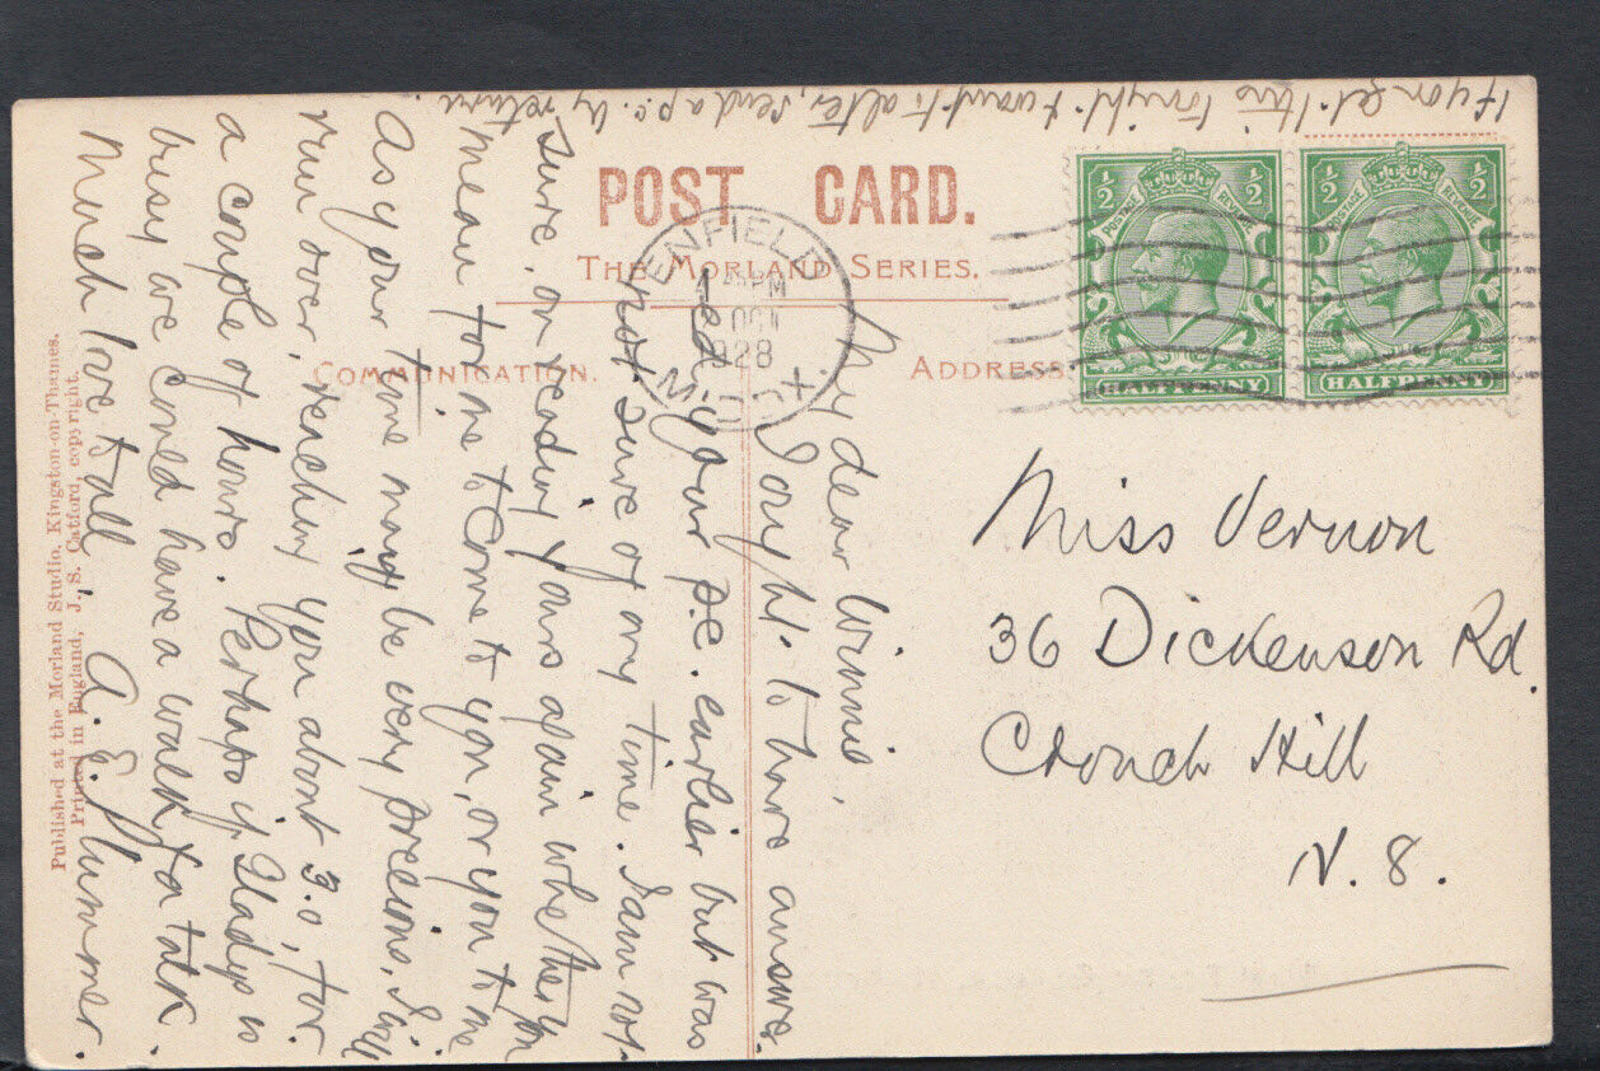 If you get this tonight & want to alter, send a p.c. by return.
POST CARD.
THE MORLAND SERIES.
COMMUNICATION.
ADDRESS.
ENFIELD
PM
OCT
1928
MIDDX.
½ ½
POSTAGE REVENUE
HALFPENNY
½ ½
POSTAGE REVENUE
HALFPENNY
Miss Vernon
36 Dickenson Rd.
Crouch Hill
N. 8.
My dear Winnie,
I ought to have answe-
red your p.c. earlier but was
not sure of my time. I am not
sure, on reading yours again whether you
mean for me to come to you, or you to me
As your time may be very precious, I will
run over, reaching you about 3.0, for
a couple of hours. Perhaps if Gladys is
busy we could have a walk, for a talk.
Much love to all, A. E. Plummer.
Published at the Morland Studio, Kingston-on-Thames.
Printed in England, J. S. Catford, copyright.